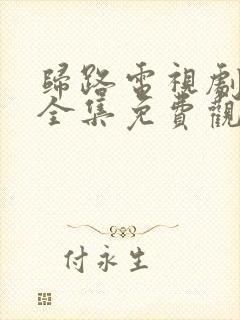 歸路電視劇
全集免費觀
付永生